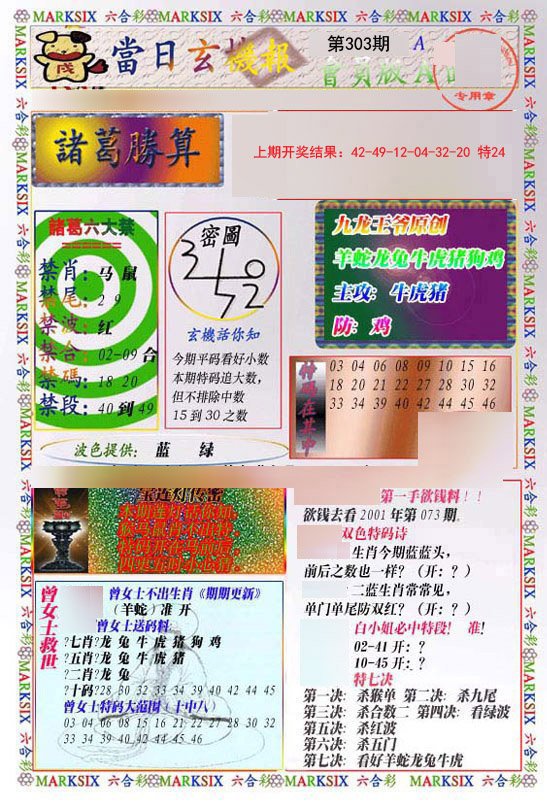 MARKSIX 六合彩 MARKSIX 六合彩 MARKSIX 六合彩 MARKSIX 六合彩
當日玄機報
第303期 A
會員版A
专用章
諸葛勝算
上期开奖结果：42-49-12-04-32-20 特24
諸葛六大禁
禁肖：马 鼠
禁尾：2 9
禁波：红
禁合：02-09合
禁碼：18 20
禁段：40到49
密圖
玄機話你知
今期平码看好小数
本期特码追大数，
但不排除中数
15到30之数
九龙王爷原创
羊蛇龙兔牛虎猪狗鸡
主攻：牛虎猪
防：鸡
特码在其中
03 04 06 08 09 10 15 16
18 20 21 22 27 28 30 32
33 34 39 40 42 44 45 46
波色提供： 蓝 绿
第一手欲钱料！！
欲钱去看2001年第073期.
双色特码诗
生肖今期蓝蓝头，
前后之数也一样？（开：？）
二蓝生肖常常见，
单门单尾防双红？（开：？）
白小姐必中特段！ 准！
02-41开：？
10-45开：？
特七决
第一决：杀猴单 第二决：杀九尾
第三决：杀合数二 第四决：看绿波
第五决：杀红波
第六决：杀五门
第七决：看好羊蛇龙兔牛虎
曾女士救世
曾女士不出生肖《期期更新》
（羊蛇）准 开
曾女士送码料：
?七肖?龙 兔 牛 虎 猪 狗 鸡
?五肖?龙 兔 牛 虎 猪
?二肖?龙 兔
?十码?28 30 32 33 34 39 40 42 44 45
曾女士特码大范围（十中八）
03 04 06 08 15 16 21 22 27 28 30 32
33 34 39 40 42 44 45 46
MARKSIX 六合彩 MARKSIX 六合彩 MARKSIX 六合彩 MARKSIX 六合彩